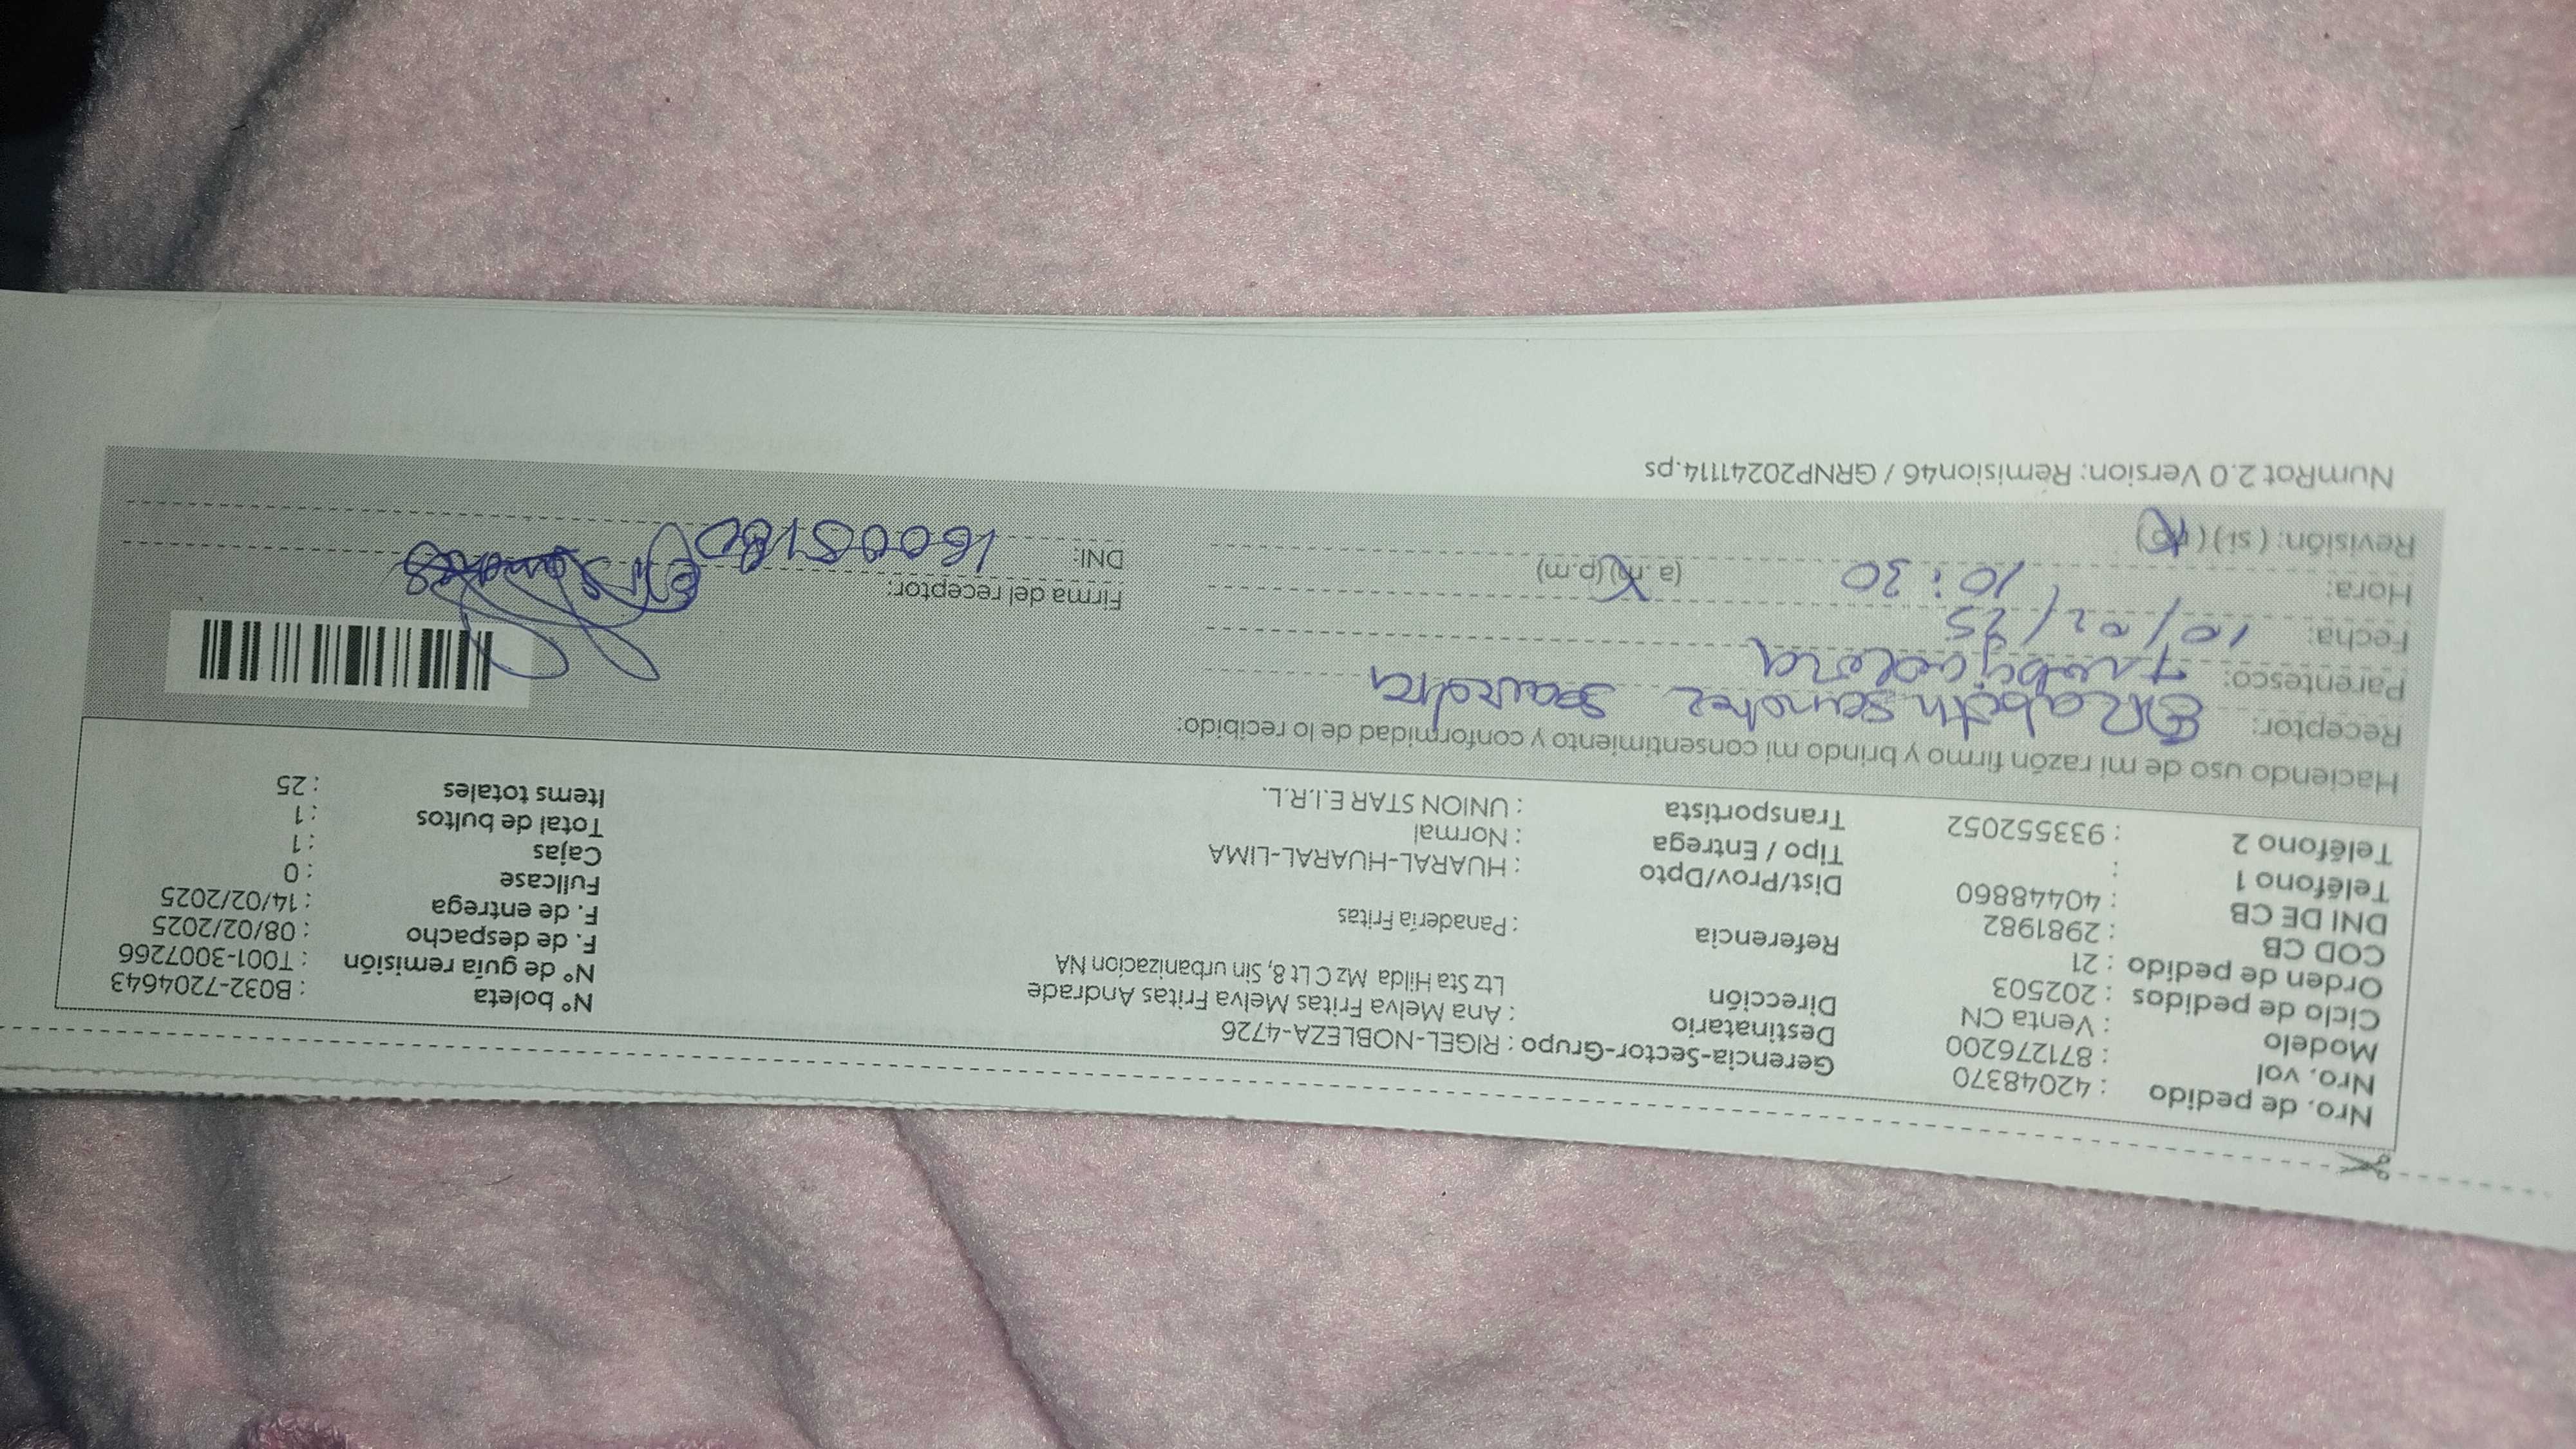 Nro. de pedido : 42048370
Nro. vol : 871276200
Modelo : Venta CN
Ciclo de pedidos : 202503
Orden de pedido : 21
COD CB : 2981982
DNI DE CB : 40448860
Teléfono 1 :
Teléfono 2 : 933552052
Gerencia-Sector-Grupo : RIGEL-NOBLEZA-4726
Destinatario : Ana Melva Fritas Melva Fritas Andrade
Dirección Ltz Sta Hilda Mz C Lt 8, Sin urbanizacion NA
Referencia : Panadería Fritas
Dist/Prov/Dpto : HUARAL-HUARAL-LIMA
Tipo / Entrega : Normal
Transportista : UNION STAR E.I.R.L.
N° boleta : B032-7204643
N° de guía remisión : T001-3007266
F. de despacho : 08/02/2025
F. de entrega : 14/02/2025
Fullcase : 0
Cajas : 1
Total de bultos : 1
Items totales : 25
Haciendo uso de mi razón firmo y brindo mi consentimiento y conformidad de lo recibido:
Receptor: Elizabeth Sanchez
Parentesco: trabajadora
Fecha: 10/02/25
Hora: 10:30 (a.m) (p.m)
Revisión: (si) (no)
Firma del receptor:
DNI:
NumRot 2.0 Version: Remision46 / GRNP20241114.ps